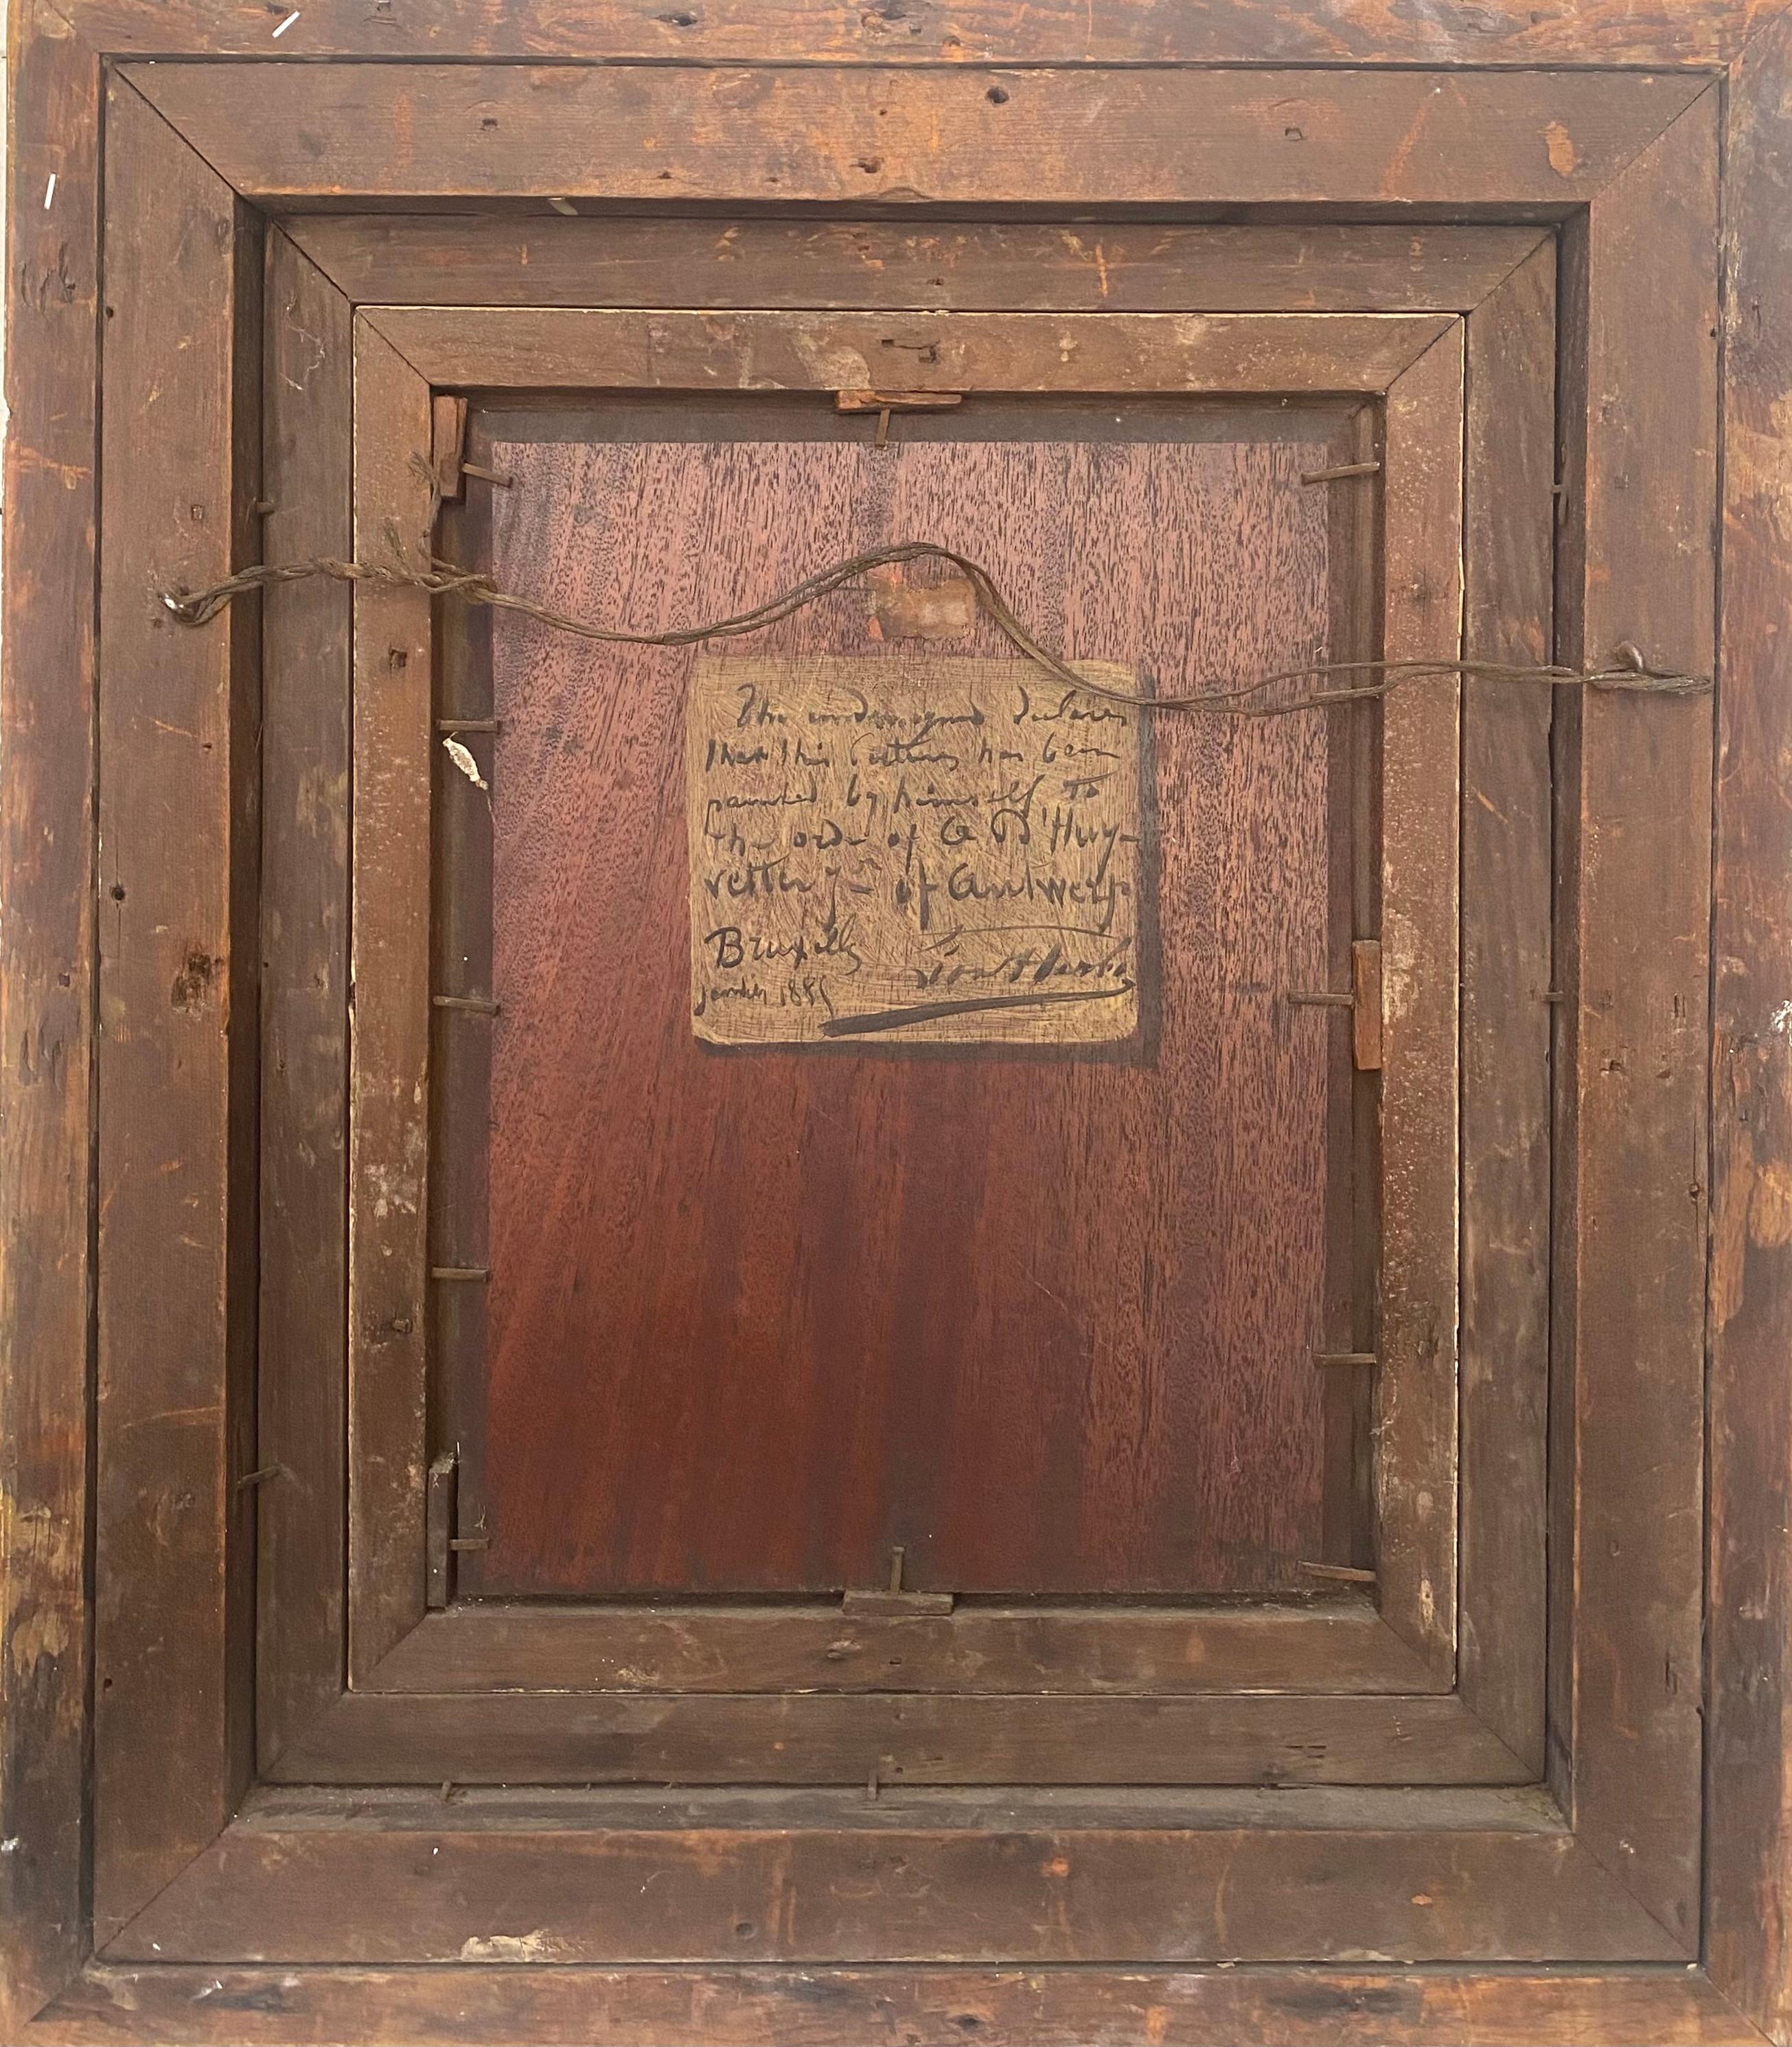 The undersigned declares
that this picture has been
painted by himself to
the order of G D'Huy-
vetter jnr of Antwerp.
Bruxelles
janvier 188